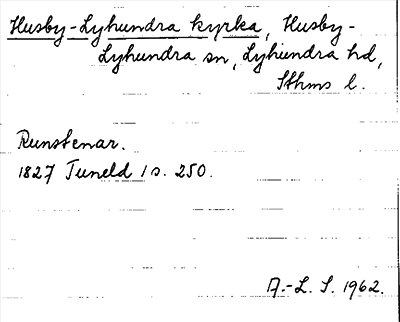 Husby-Lyhundra kyrka, Husby-
Lyhundra sn, Lyhundra hd,
Sthms l.
Runstenar.
1827 Tuneld 1 s. 250.
A.-L. S. 1962.